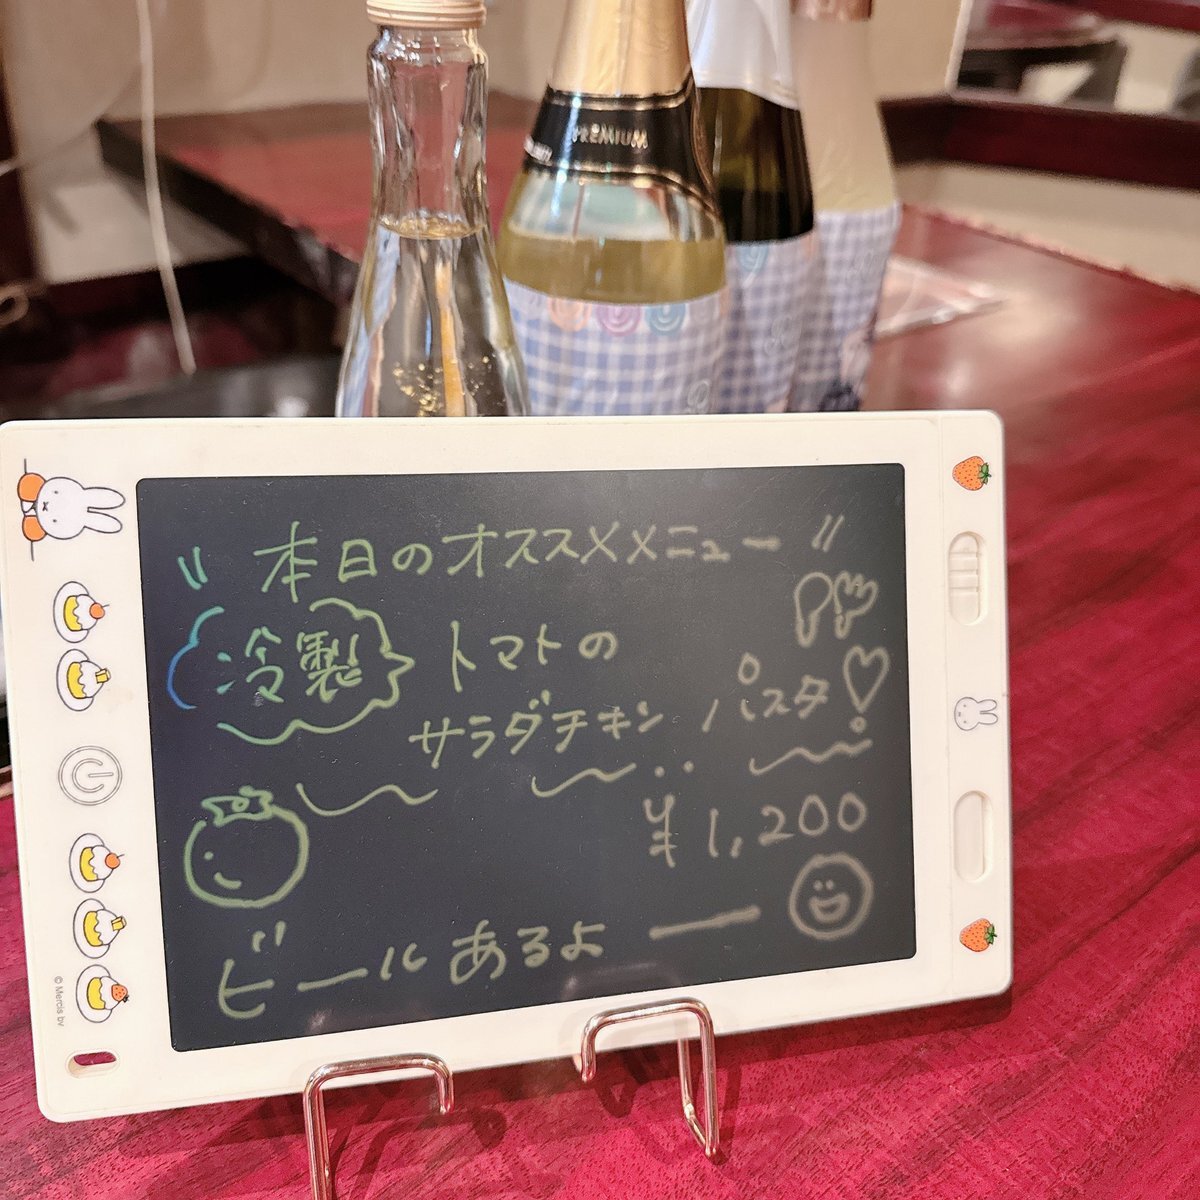 PREMIUM
〃 本日のオススメメニュー 〃
冷製 トマトの
サラダチキン パスタ
¥1,200
ビールあるよー
© Mercis bv